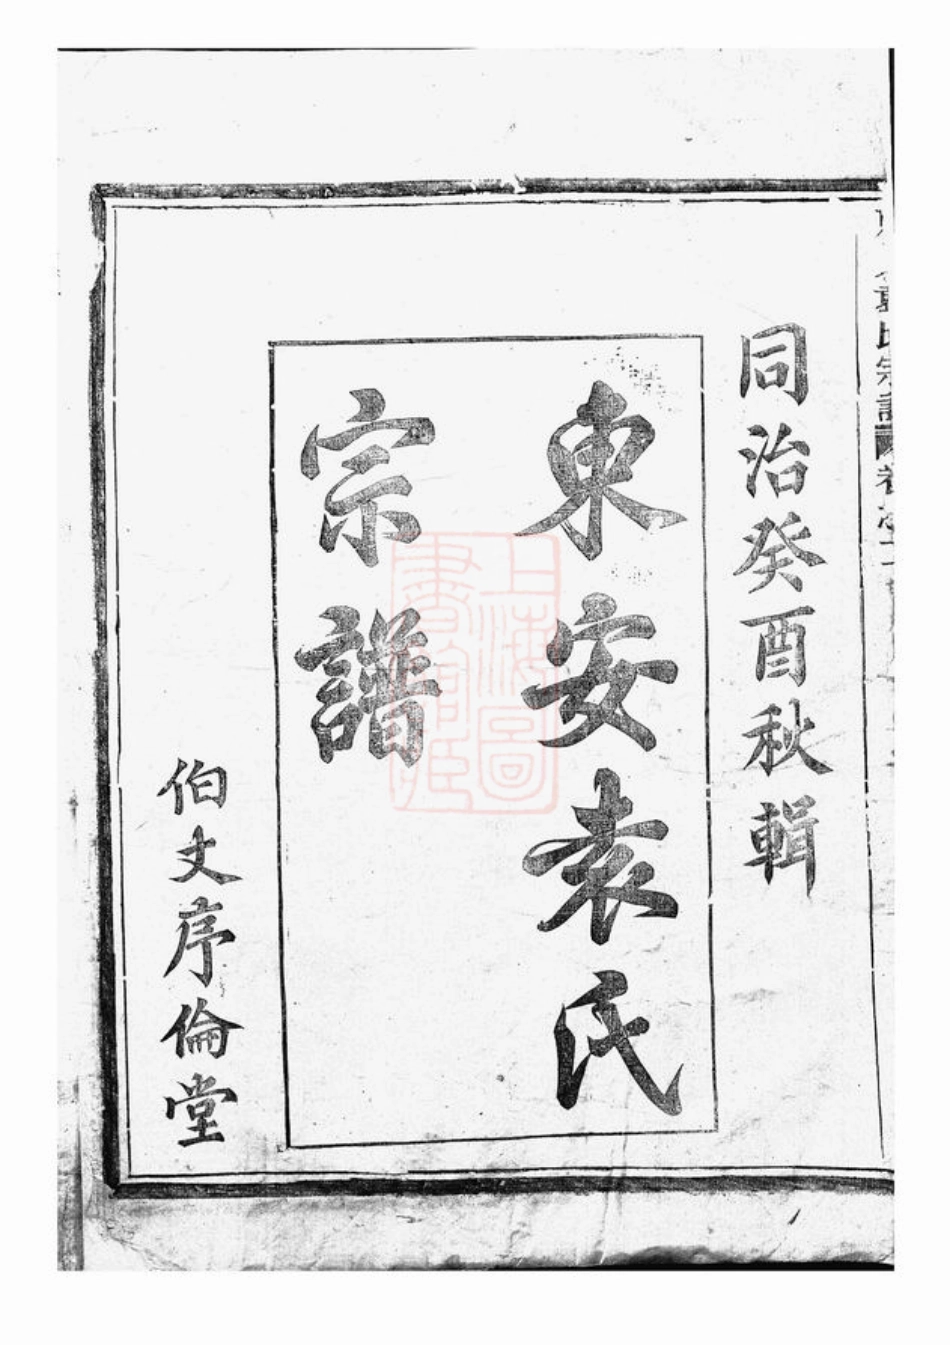 同治癸酉秋輯
東安袁氏
宗譜
伯文序倫堂
上海圖
書館藏